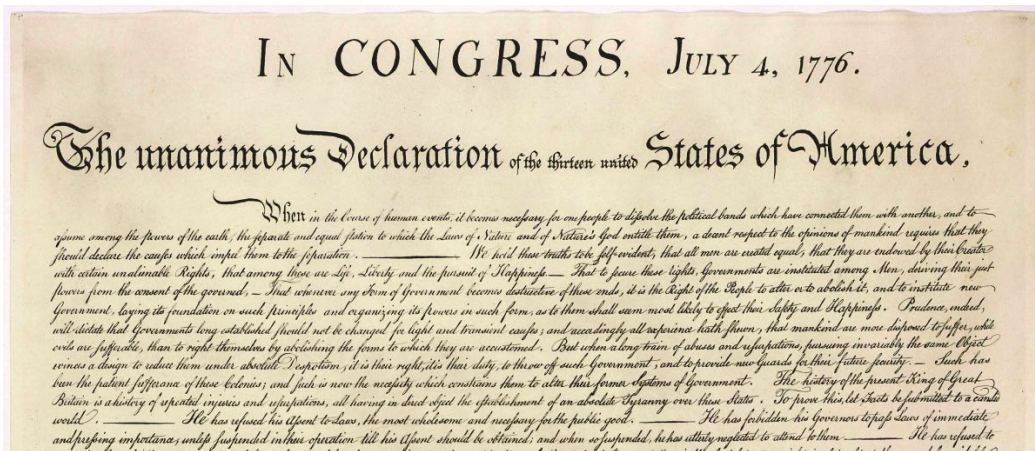 In CONGRESS, July 4, 1776.
The unanimous Declaration of the thirteen united States of America,
When in the Course of human events, it becomes necessary for one people to dissolve the political bands which have connected them with another, and to
assume among the powers of the earth, the separate and equal station to which the Laws of Nature and of Nature's God entitle them, a decent respect to the opinions of mankind requires that they
should declare the causes which impel them to the separation. We hold these truths to be self-evident, that all men are created equal, that they are endowed by their Creator
with certain unalienable Rights, that among these are Life, Liberty and the pursuit of Happiness.— That to secure these rights, Governments are instituted among Men, deriving their just
powers from the consent of the governed, — That whenever any Form of Government becomes destructive of these ends, it is the Right of the People to alter or to abolish it, and to institute new
Government, laying its foundation on such principles and organizing its powers in such form, as to them shall seem most likely to effect their Safety and Happiness. Prudence, indeed,
will dictate that Governments long established should not be changed for light and transient causes; and accordingly all experience hath shewn, that mankind are more disposed to suffer, while
evils are sufferable, than to right themselves by abolishing the forms to which they are accustomed. But when a long train of abuses and usurpations, pursuing invariably the same Object
evinces a design to reduce them under absolute Despotism, it is their right, it is their duty, to throw off such Government, and to provide new Guards for their future security.— Such has
been the patient sufferance of these Colonies; and such is now the necessity which constrains them to alter their former Systems of Government. The history of the present King of Great
Britain is a history of repeated injuries and usurpations, all having in direct object the establishment of an absolute Tyranny over these States. To prove this, let Facts be submitted to a candid
world. He has refused his Assent to Laws, the most wholesome and necessary for the public good. He has forbidden his Governors to pass Laws of immediate
and pressing importance, unless suspended in their operation till his Assent should be obtained; and when so suspended, he has utterly neglected to attend to them. He has refused to